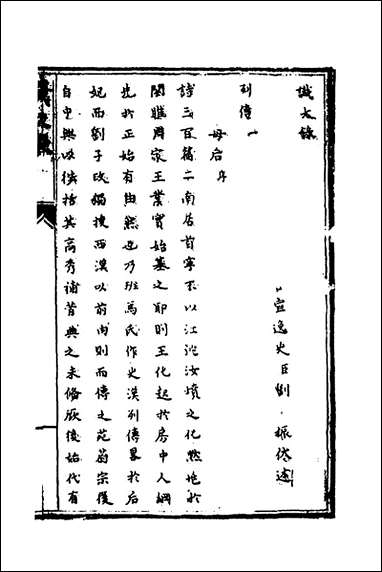 識大錄
宣逸史臣劉振述
列傳一
母后序
詩三百篇二南居首寧不以江沱汝墳之化於
關雎周家王業實始基之耶則王化起於房中人綱
先於正始有由然也乃班馬氏作史漢列傳畧於后
妃而劉子政獨搜西漢以前內則而傳之范蔚宗復
自中興以括其高秀補昔典之未脩厥後始代有